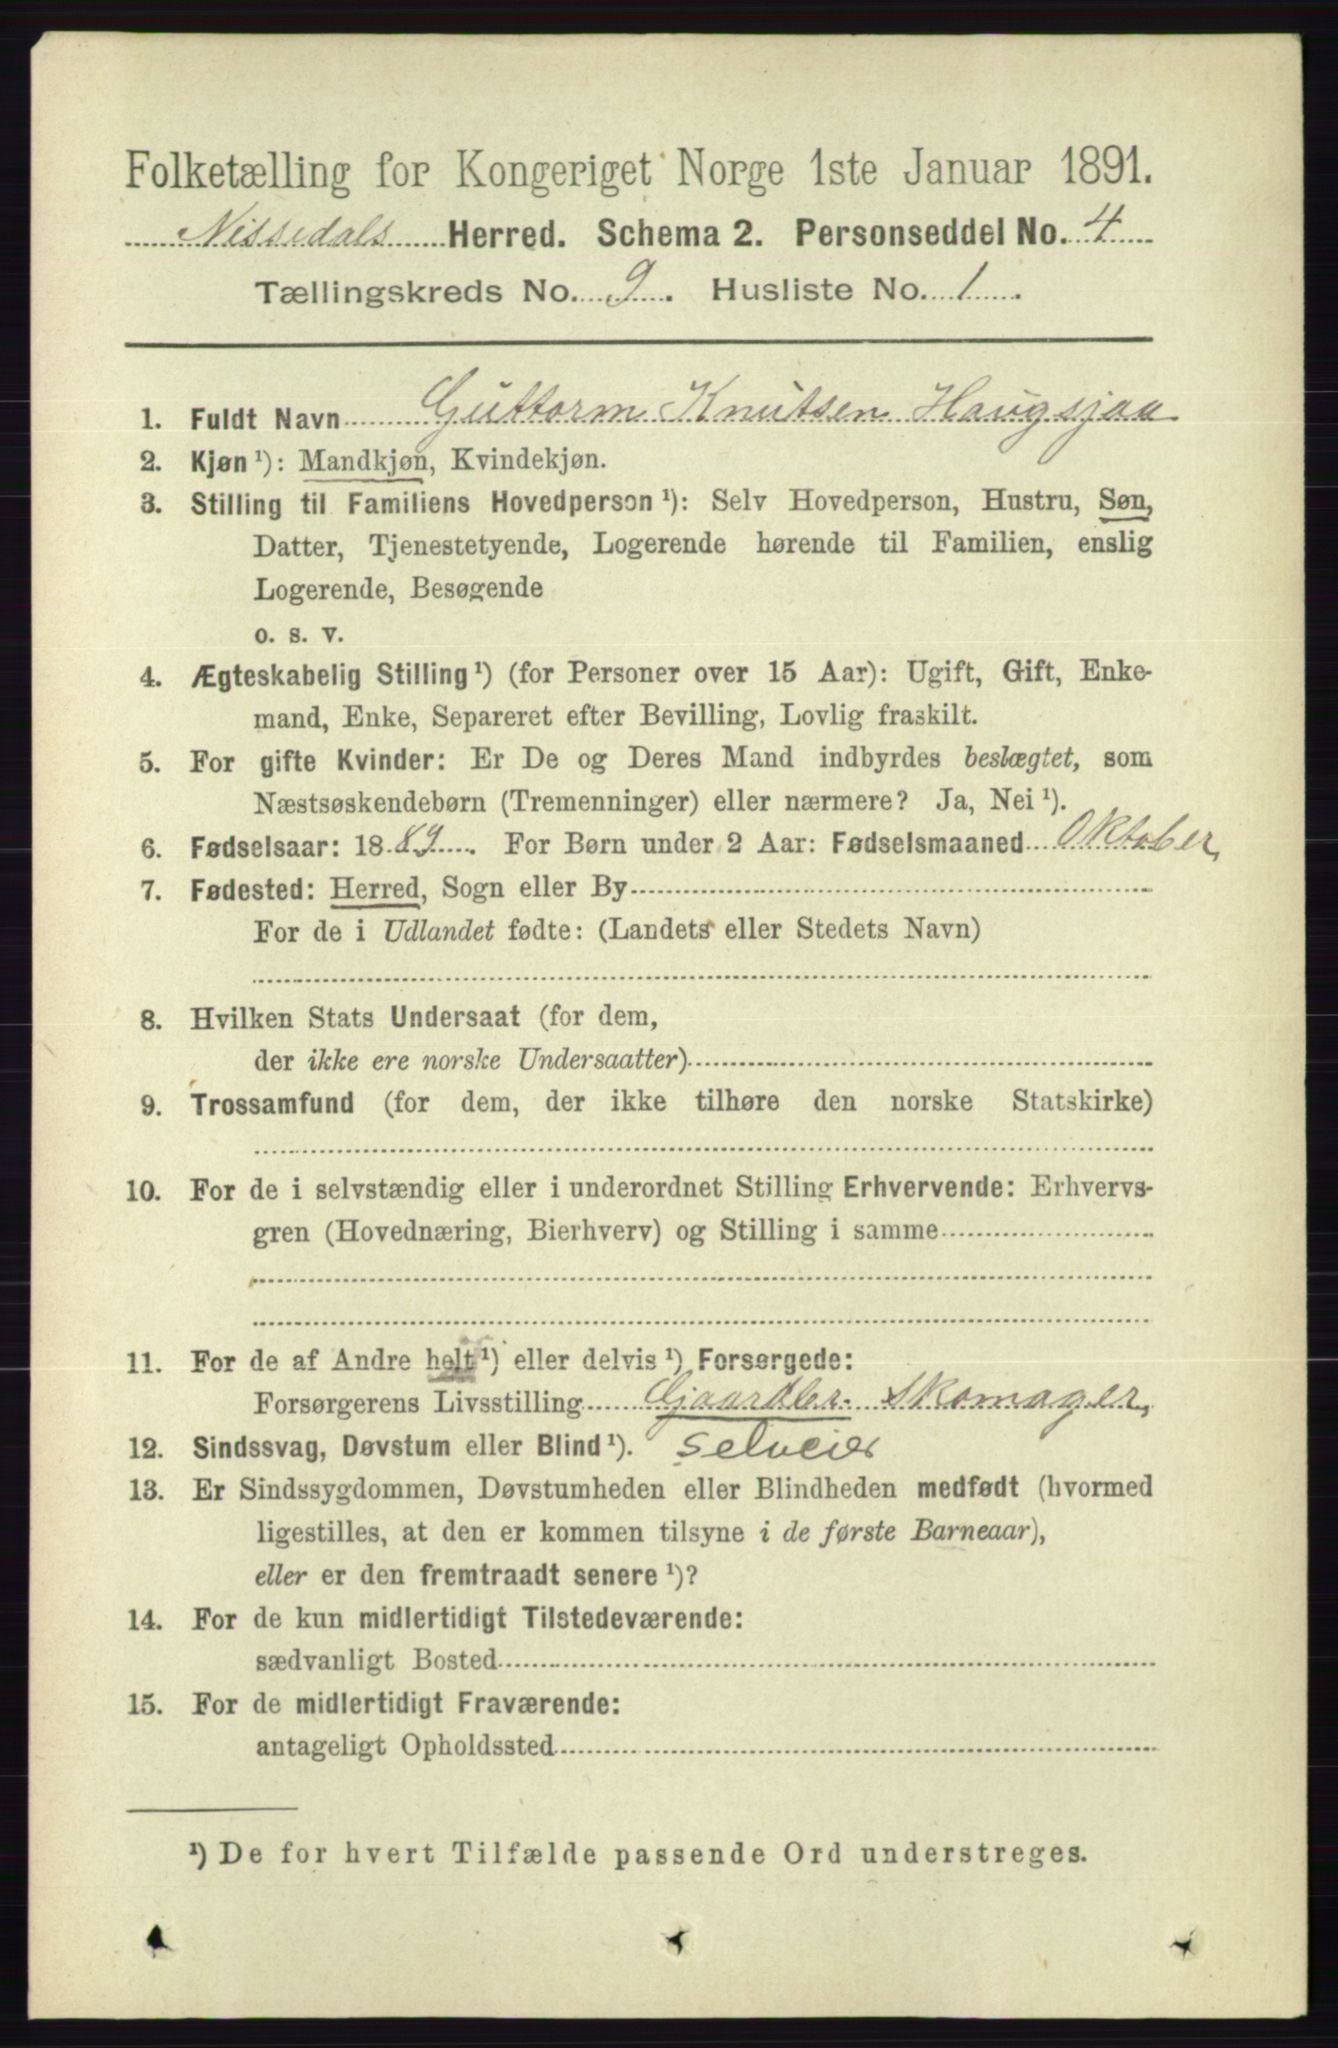 Folketælling for Kongeriget Norge 1ste Januar 1891.
Nissedals Herred. Schema 2. Personseddel No. 4
Tællingskreds No. 9. Husliste No. 1.
1. Fuldt Navn Guttorm Knutsen Haugsjaa
2. Kjøn¹): Mandkjøn, Kvindekjøn.
3. Stilling til Familiens Hovedperson¹): Selv Hovedperson, Hustru, Søn,
Datter, Tjenestetyende, Logerende hørende til Familien, enslig
Logerende, Besøgende
o. s. v.
4. Ægteskabelig Stilling¹) (for Personer over 15 Aar): Ugift, Gift, Enke-
mand, Enke, Separeret efter Bevilling, Lovlig fraskilt.
5. For gifte Kvinder: Er De og Deres Mand indbyrdes beslægtet, som
Næstsøskendebørn (Tremenninger) eller nærmere? Ja, Nei¹).
6. Fødselsaar: 1889. For Børn under 2 Aar: Fødselsmaaned Oktober,
7. Fødested: Herred, Sogn eller By
For de i Udlandet fødte: (Landets eller Stedets Navn)
8. Hvilken Stats Undersaat (for dem,
der ikke ere norske Undersaatter)
9. Trossamfund (for dem, der ikke tilhøre den norske Statskirke)
10. For de i selvstændig eller i underordnet Stilling Erhvervende: Erhvervs-
gren (Hovednæring, Bierhverv) og Stilling i samme
11. For de af Andre helt¹) eller delvis¹) Forsørgede:
Forsørgerens Livsstilling Gjaardbr. Skomager,
12. Sindssvag, Døvstum eller Blind¹). selveier
13. Er Sindssygdommen, Døvstumheden eller Blindheden medfødt (hvormed
ligestilles, at den er kommen tilsyne i de første Barneaar),
eller er den fremtraadt senere¹)?
14. For de kun midlertidigt Tilstedeværende:
sædvanligt Bosted
15. For de midlertidigt Fraværende:
antageligt Opholdssted
¹) De for hvert Tilfælde passende Ord understreges.